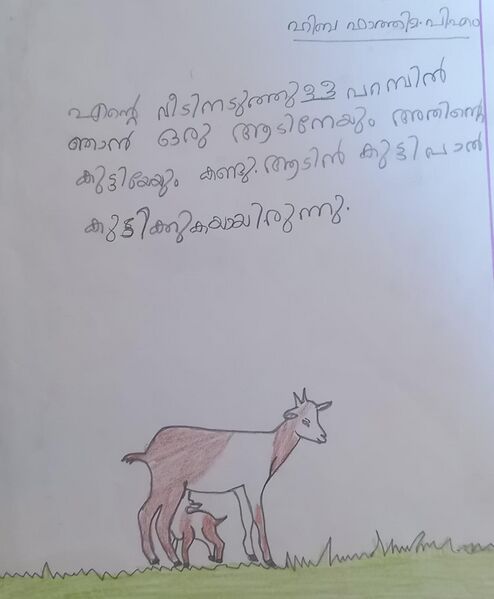 ഹിബ ഫാത്തിമ.പി.എം
എന്റെ വീടിനടുത്തുള്ള പറമ്പിൽ
ഞാൻ ഒരു ആടിനേയും അതിന്റെ
കുട്ടിയേയും കണ്ടു. ആടിൻ കുട്ടി പാൽ
കുടിക്കുകയായിരുന്നു.